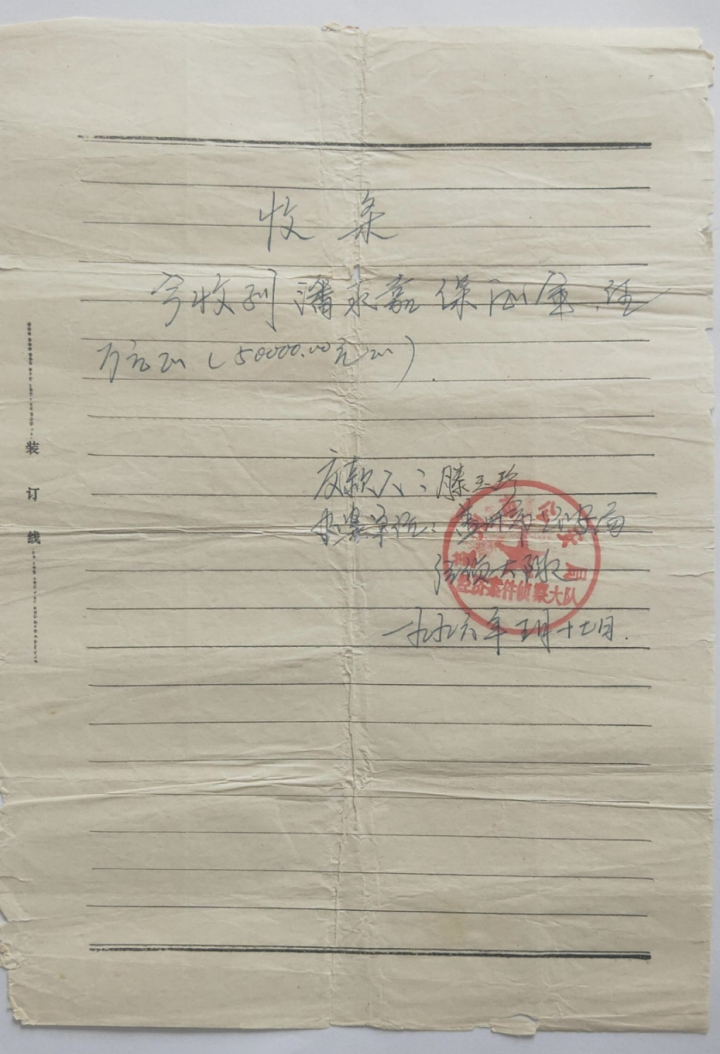 收条
今收到潘永嘉保证金,伍
万元正(50000.00元正).
交款人:滕玉珍
办案单位:市公安局
经侦大队
一九九六年五月十七日.
公安局
经济案件侦察大队
装订线